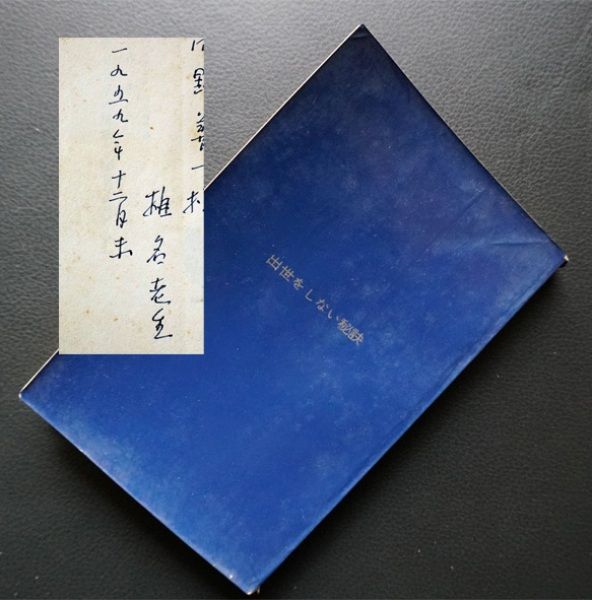 椎名老生
一九五九年十二月末
出世をしない秘訣